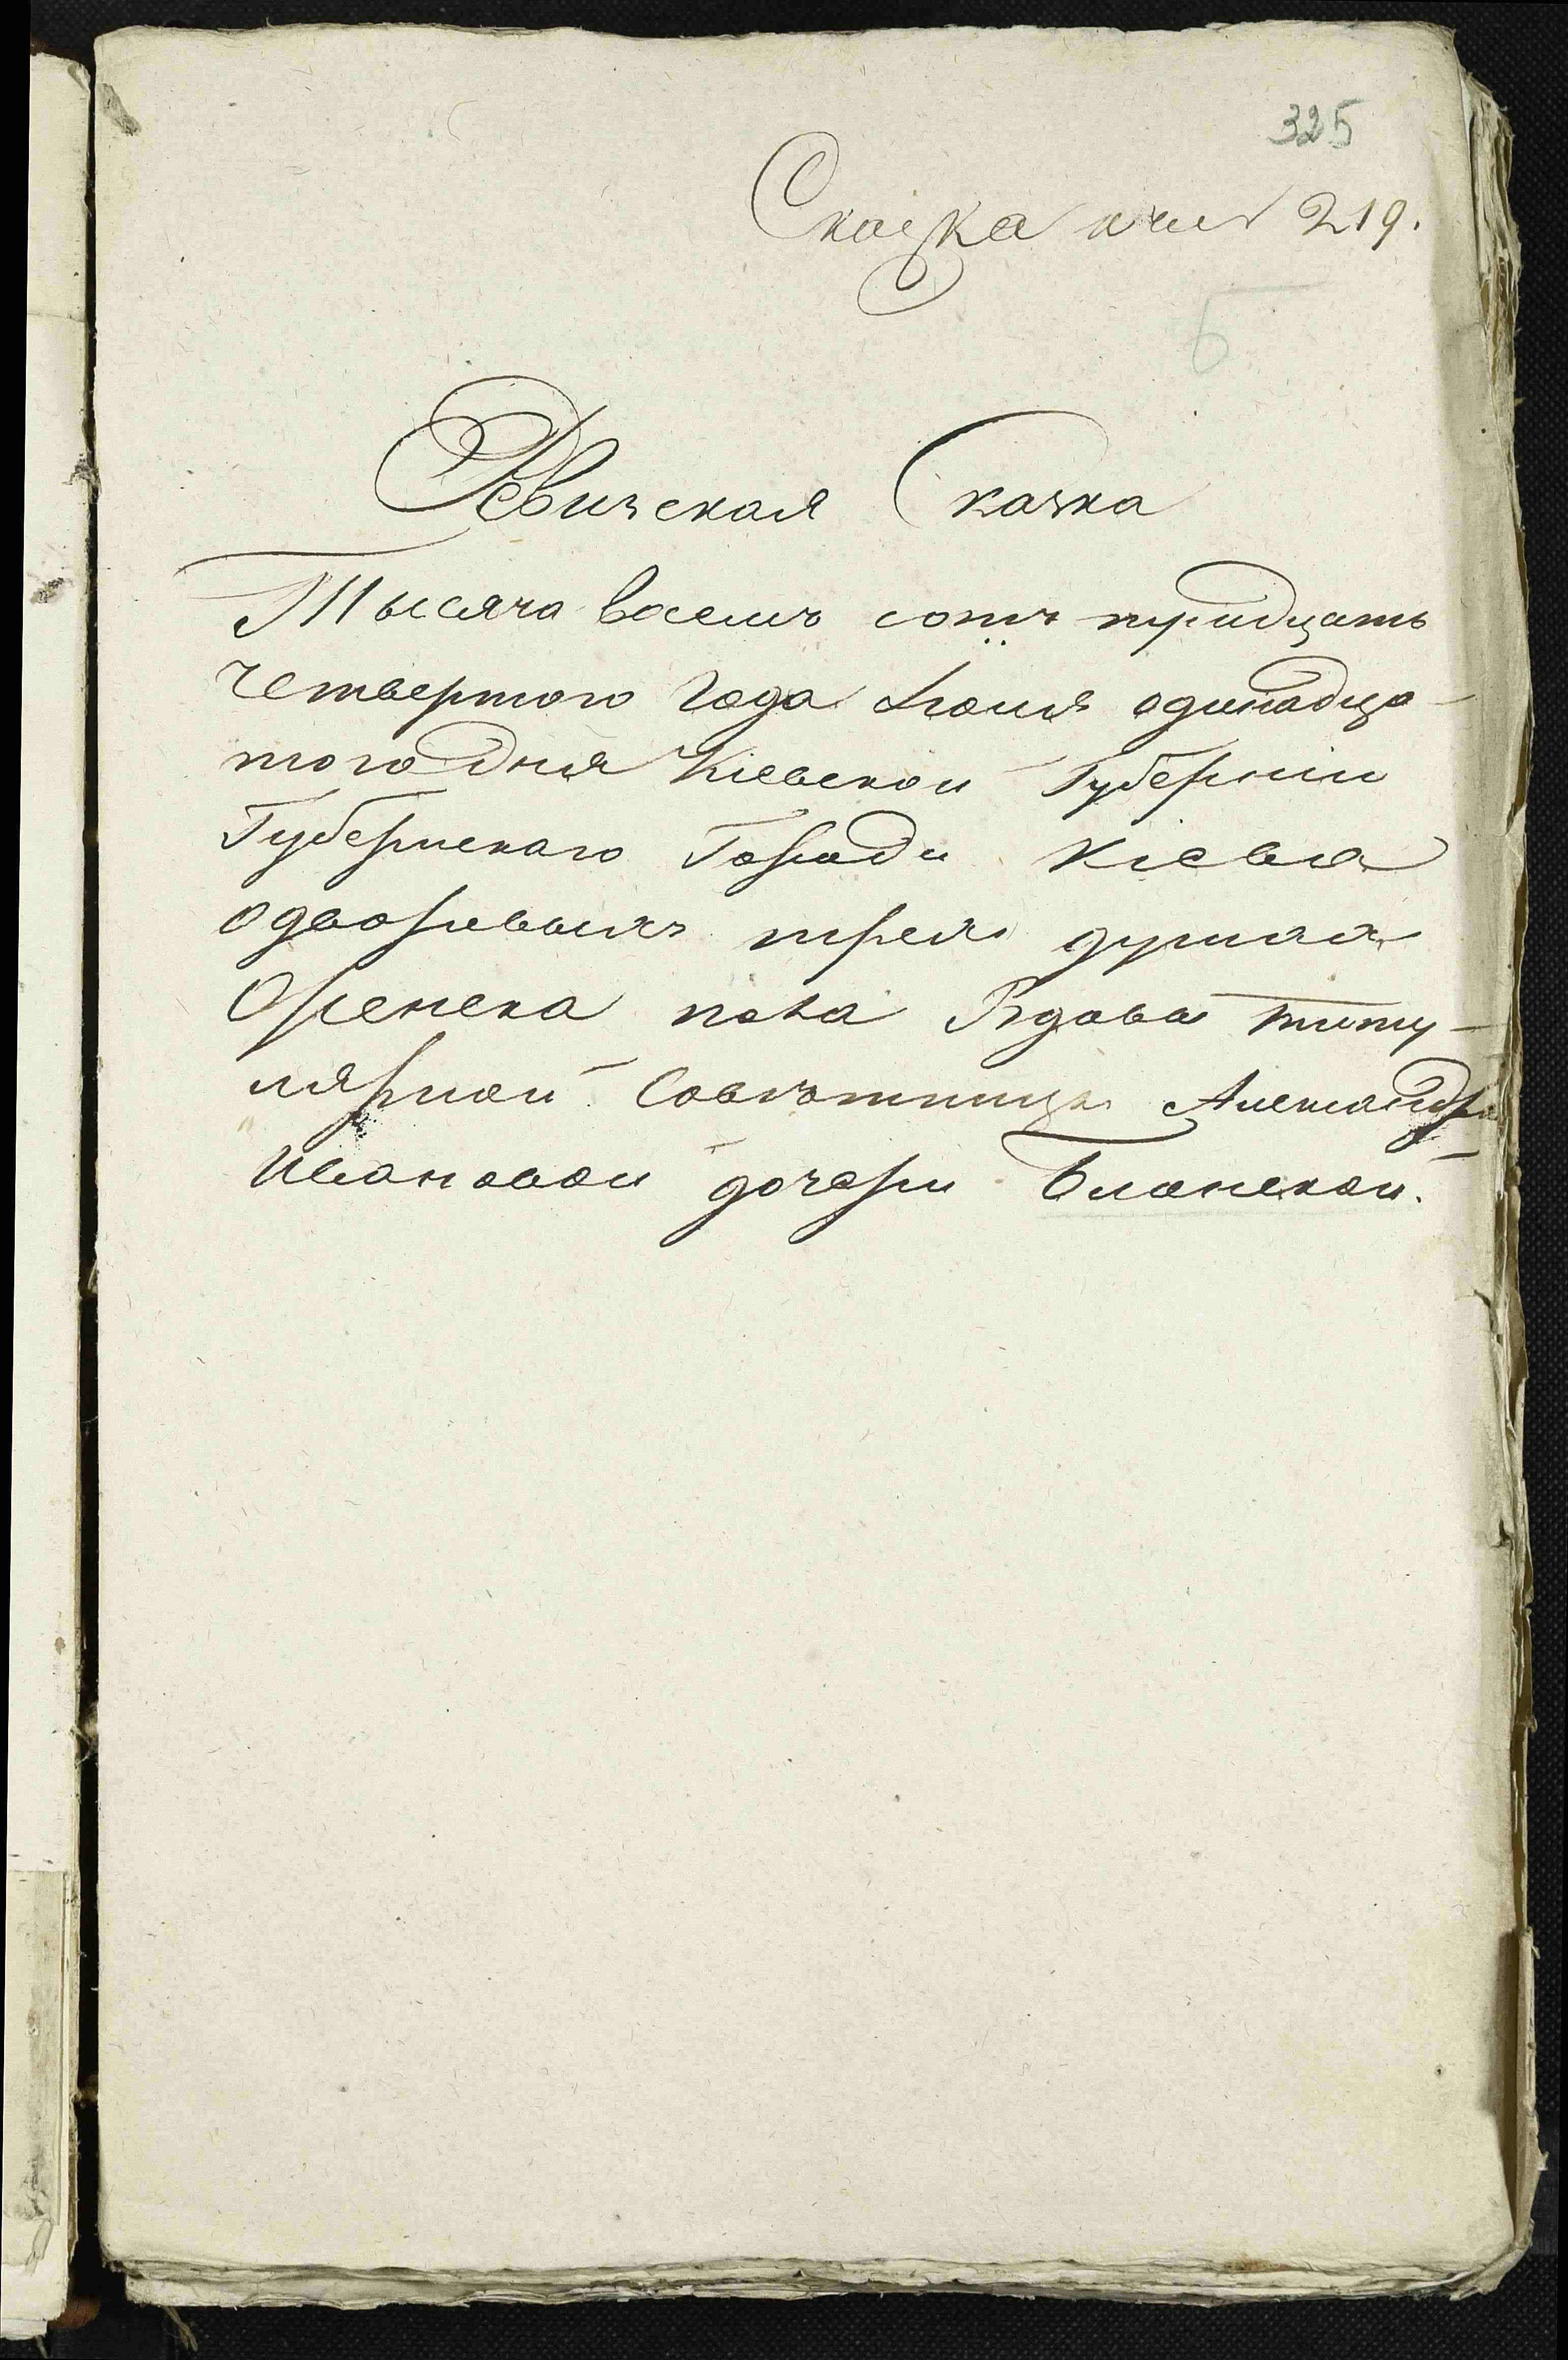 325
Сказка 219.
Б
Ревизская Сказка
Тысяча восемъ сотъ тридцать
четвертого года Іюня одинадца-
того дня Кіевской Губерніи
Губернскаго Города Кіева
одворовыхъ трехъ душаа
Оженска пола Вдова титу-
лярной Совѣтницы Александра
Ивановой дочери Бланской.